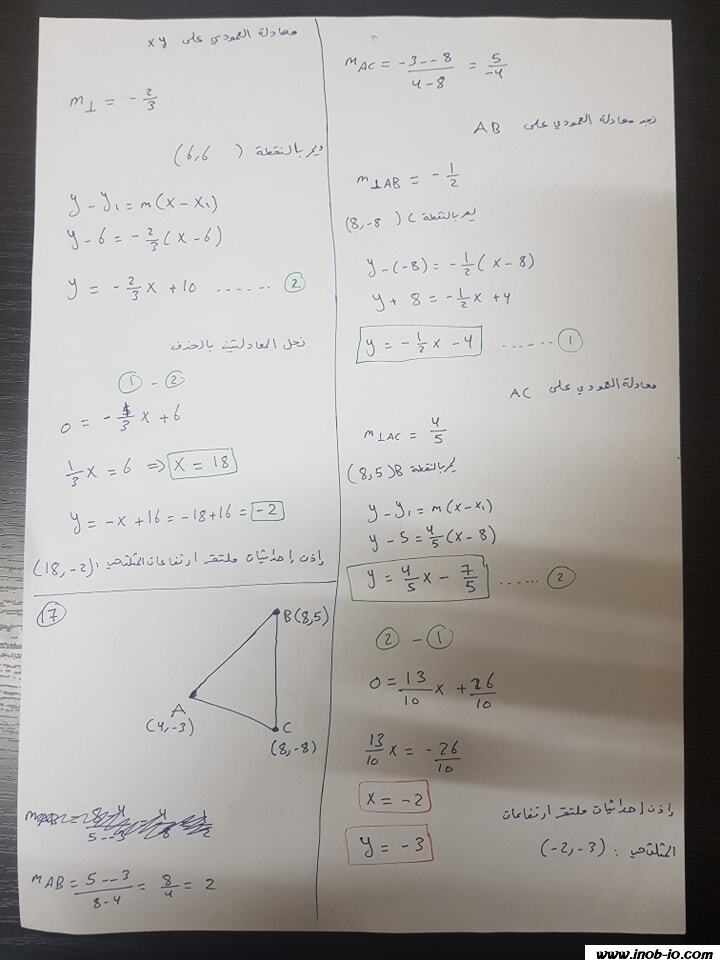 معادلة العمودي على xy
m⊥ = -2/3
ويمر بالنقطة (6,6)
y - y₁ = m(x - x₁)
y - 6 = -2/3(x - 6)
y = -2/3x + 10 ...... ②
نحل المعادلتين بالحذف
① - ②
0 = -1/3x + 6
1/3x = 6 => x = 18
y = -x + 16 = -18 + 16 = -2
إذن إحداثيات ملتقى ارتفاعات المثلث هي: (18, -2)
17
B(8,5)
A
(4,-3)
C
(8,-8)
mAB = 5--3/8-4 = 8/4 = 2
mAC = -3--8/4-8 = 5/-4
نجد معادلة العمودي على AB
m⊥AB = -1/2
يمر بالنقطة C (8,-8)
y-(-8) = -1/2(x-8)
y + 8 = -1/2x + 4
y = -1/2x - 4 ...... ①
معادلة العمودي على AC
m⊥AC = 4/5
يمر بالنقطة B(8,5)
y - y₁ = m(x - x₁)
y - 5 = 4/5(x - 8)
y = 4/5x - 7/5 ...... ②
② - ①
0 = 13/10x + 26/10
13/10x = -26/10
x = -2
y = -3
إذن إحداثيات ملتقى ارتفاعات
المثلث هي: (-2,-3)
www.inob-io.com